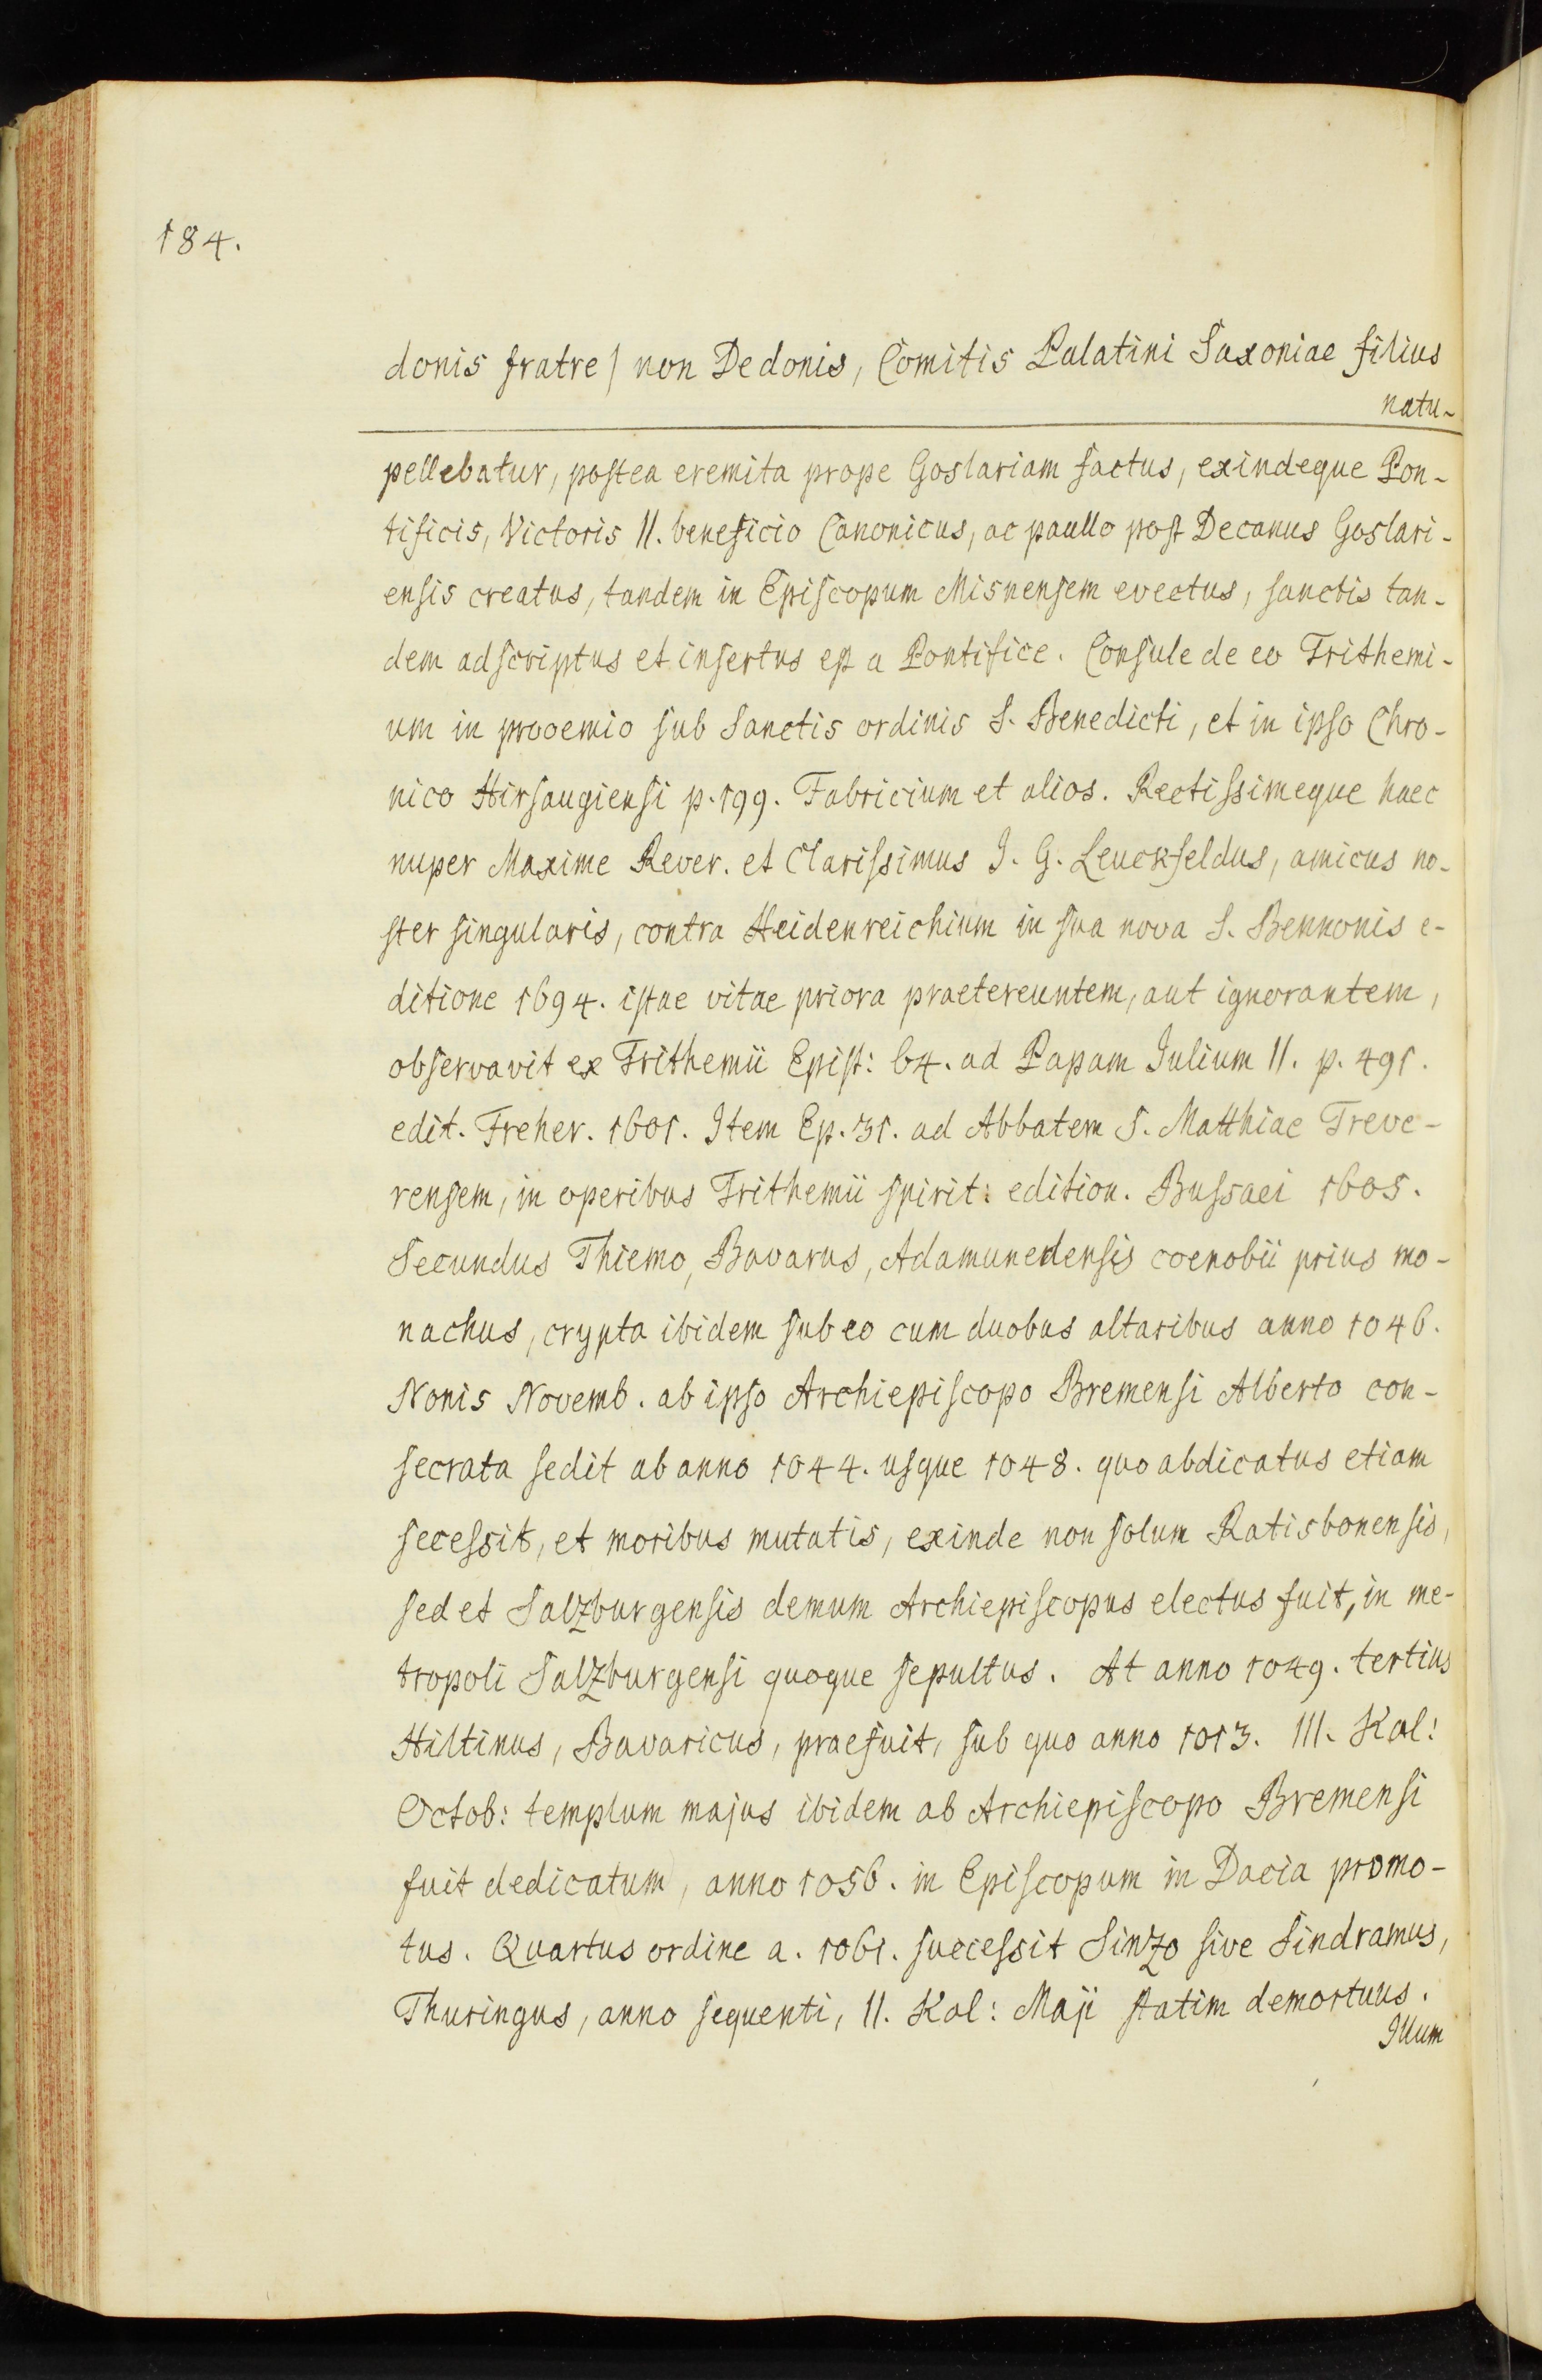 184.
donis fratre) non Dedonis, Comitis Palatini Saxoniae filius
natu-
pellebatur, postea eremita prope Goslariam factus, exindeque Pon-
tificis, Victoris II. beneficio Canonicus, ac paullo post Decanus Goslari-
ensis creatus, tandem in Episcopum Misnensem evectus, sanctis tan-
dem adscriptus et insertus est a Pontifice. Consule de eo Trithemi-
um in prooemio sub Sanctis ordinis S. Benedicti, et in ipso Chro-
nico Hirsaugiensi p. 199. Fabricium et alios. Rectissimeque haec
nuper Maxime Rever. et Clarissimus J. G. Leuckfeldus, amicus no-
ster singularis, contra Heidenreichium in sua nova S. Bennonis e-
ditione 1694. istae vitae priora praetereuntem, aut ignorantem,
observavit ex Trithemii Epist: 64. ad Papam Julium II. p. 491.
edit. Freher. 1601. Item Ep. 31. ad Abbatem S. Matthiae Treve-
rensem, in operibus Trithemii spirit: edition. Bussaei 1605.
Secundus Thiemo, Bavarus, Adamunedensis coenobii prius mo-
nachus, crypta ibidem sub eo cum duobus altaribus anno 1046.
Nonis Novemb. ab ipso Archiepiscopo Bremensi Alberto con-
secrata sedit ab anno 1044. usque 1048. quo abdicatus etiam
secessit, et moribus mutatis, exinde non solum Ratisbonensis,
sed et Salzburgensis demum Archiepiscopus electus fuit, in me-
tropoli Salzburgensi quoque sepultus. At anno 1049. tertius
Hiltinus, Bavaricus, praefuit, sub quo anno 1013. III. Kal:
Octob: templum majus ibidem ab Archiepiscopo Bremensi
fuit dedicatum, anno 1056. in Episcopum in Dacia promo-
tus. Quartus ordine a. 1061. successit Sinzo sive Sindramus,
Thuringus, anno sequenti, II. Kal: Maji statim demortuus.
Illum